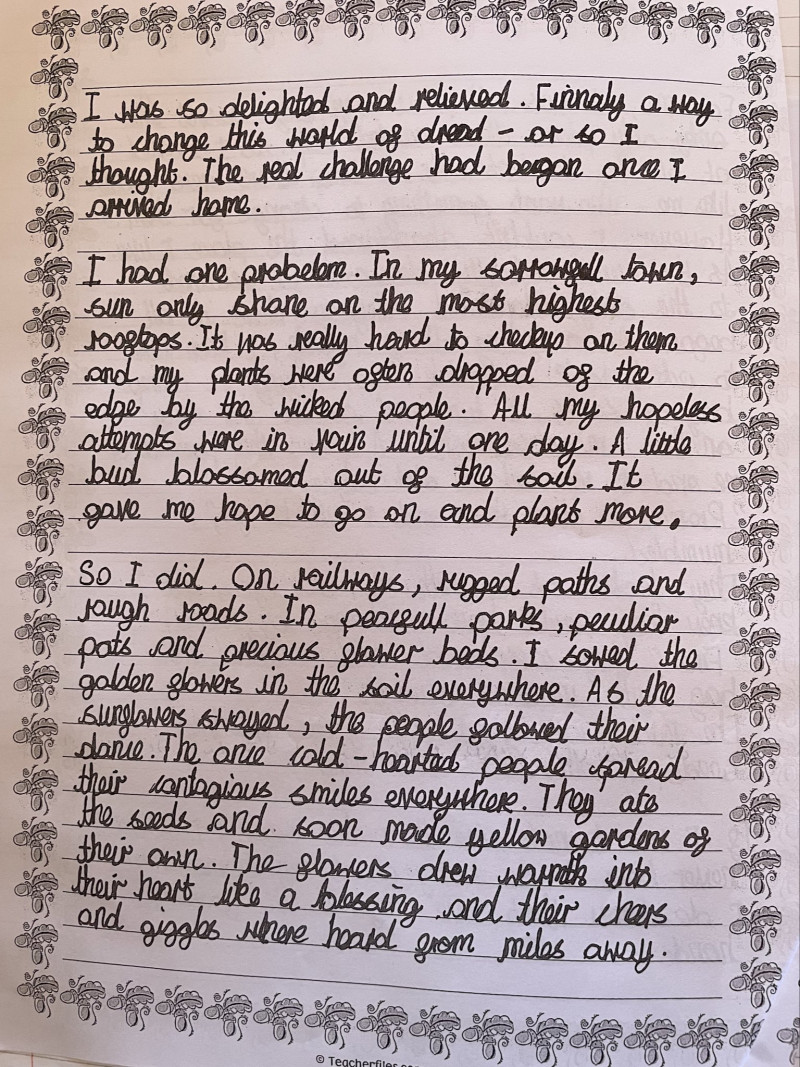 I was so delighted and relieved. Finnaly a way
to change this world of dread - or so I
thought. The real challenge had began once I
arrived home.
I had one probelem. In my sorrowfull town,
sun only shone on the most highest
rooftops. It was really hard to checkup on them
and my plants were often dropped of the
edge by the wicked people. All my hopeless
attempts were in vain until one day. A little
bud blossomed out of the soil. It
gave me hope to go on and plant more.
So I did. On railways, rugged paths and
rough roads. In peacefull parks, peculiar
pots and precious flower beds. I sowed the
golden flowers in the soil everywhere. As the
sunflowers swayed, the people followed their
dance. The once cold-hearted people spread
their contagious smiles everywhere. They ate
the seeds and soon made yellow gardens of
their own. The flowers drew warmth into
their heart like a blessing and their cheers
and giggles where heard from miles away.